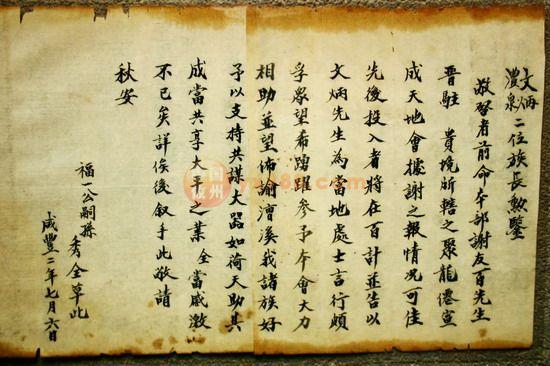 文炳
濃泉 二位族長勲鑒
敬啓者前命本部謝友百先生
晋駐 貴境所轄之聚龍僊宣
成天地會據謝之報情况可佳
先後投入者將在百計並告以
文炳先生為當地處士言行頗
孚眾望希踴躍參予本會大力
相助並望佈諭漕溪我諸族好
予以支持共謀大器如荷天助其
成當共享太平之業全當感激
不已矣詳俟後叙手此敬請
秋安
福一公嗣孫 秀全草此
咸豐二年七月六日